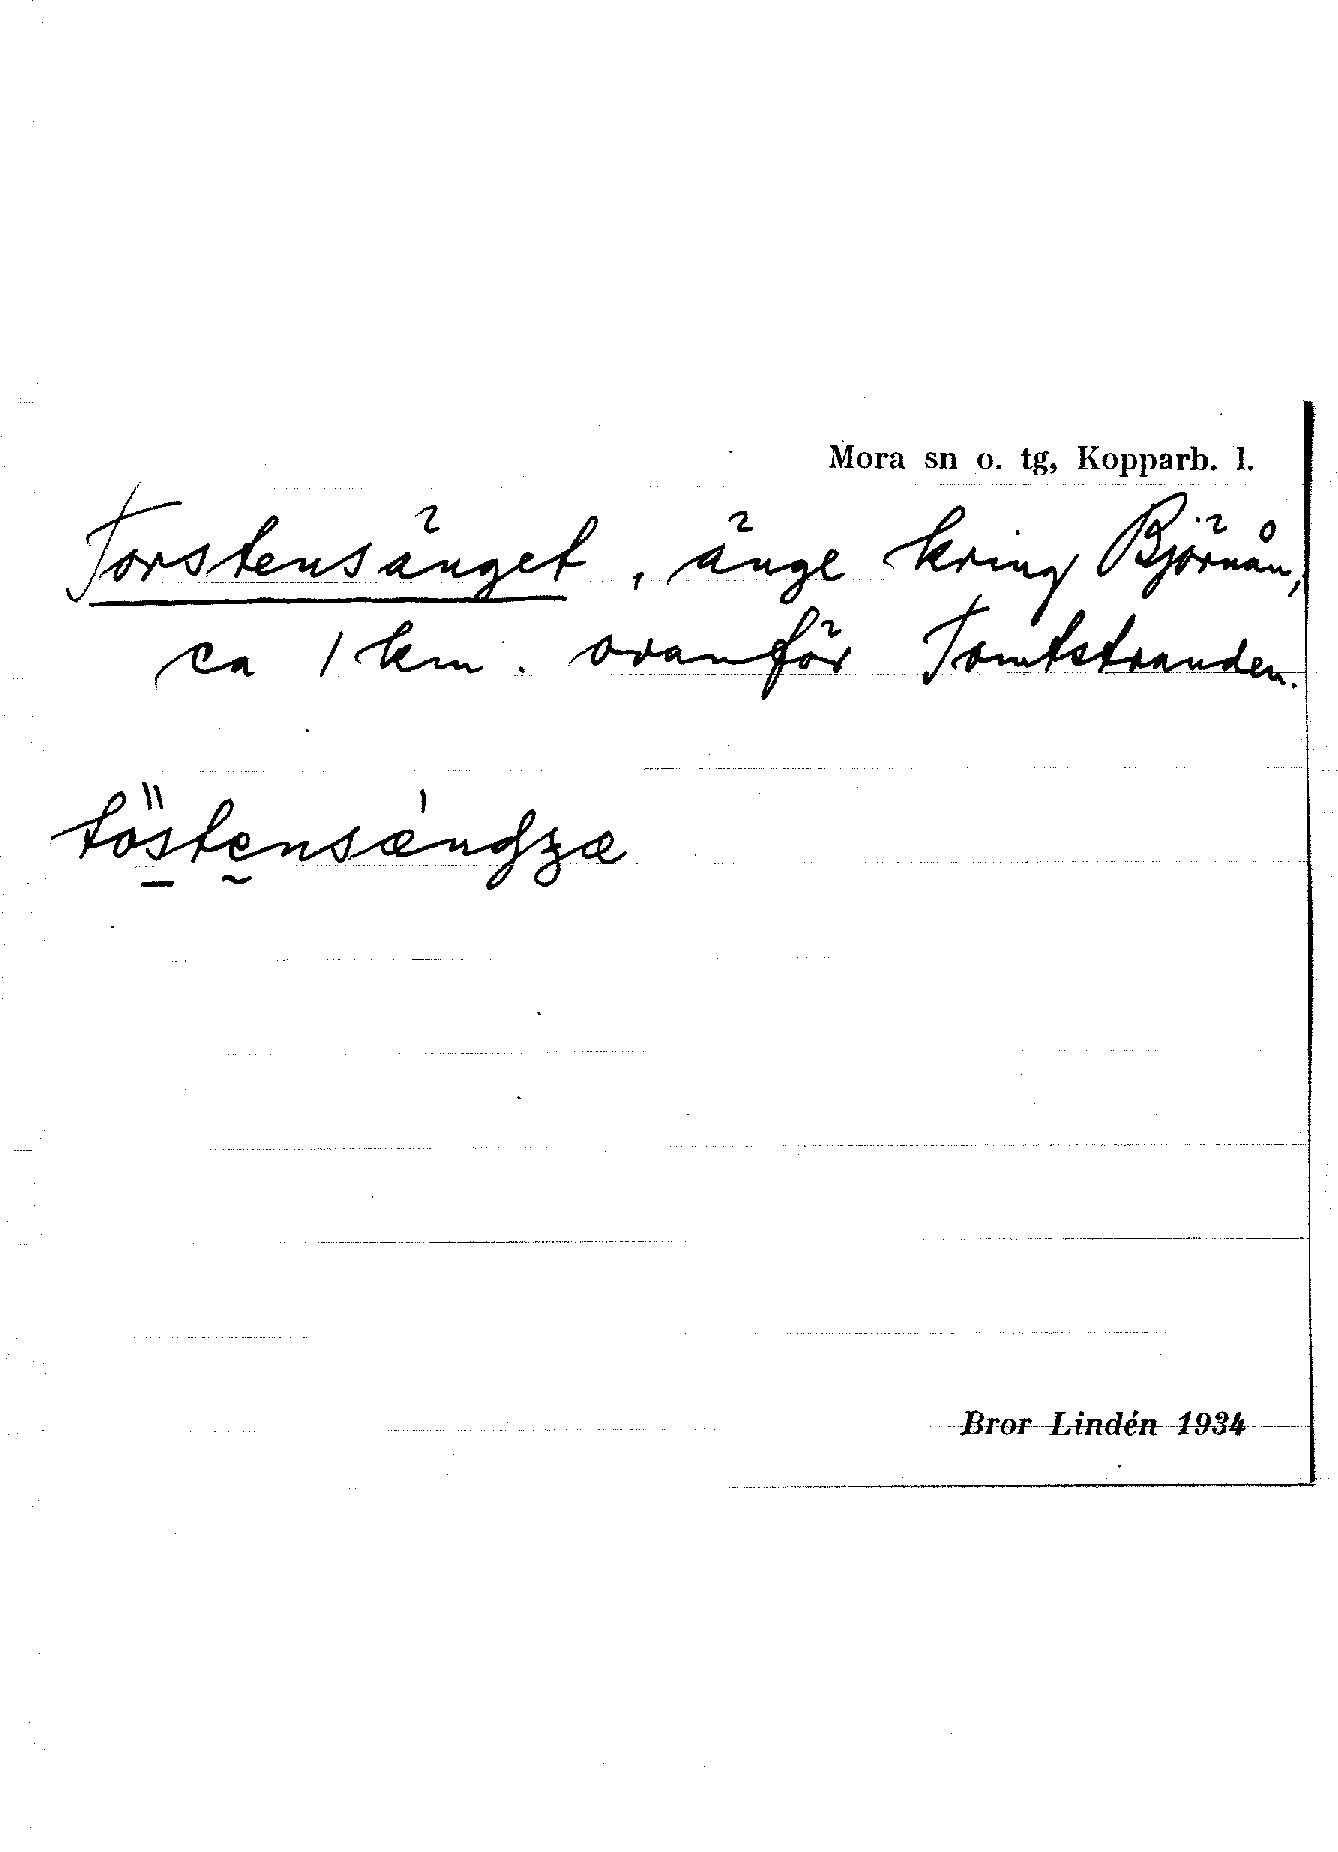 Mora sn o. tg, Kopparb. l.
Torstensänget, änge kring Björnån,
ca 1 km. ovanför Tomtstranden.
töstensængʒæ
Bror Lindén 1934